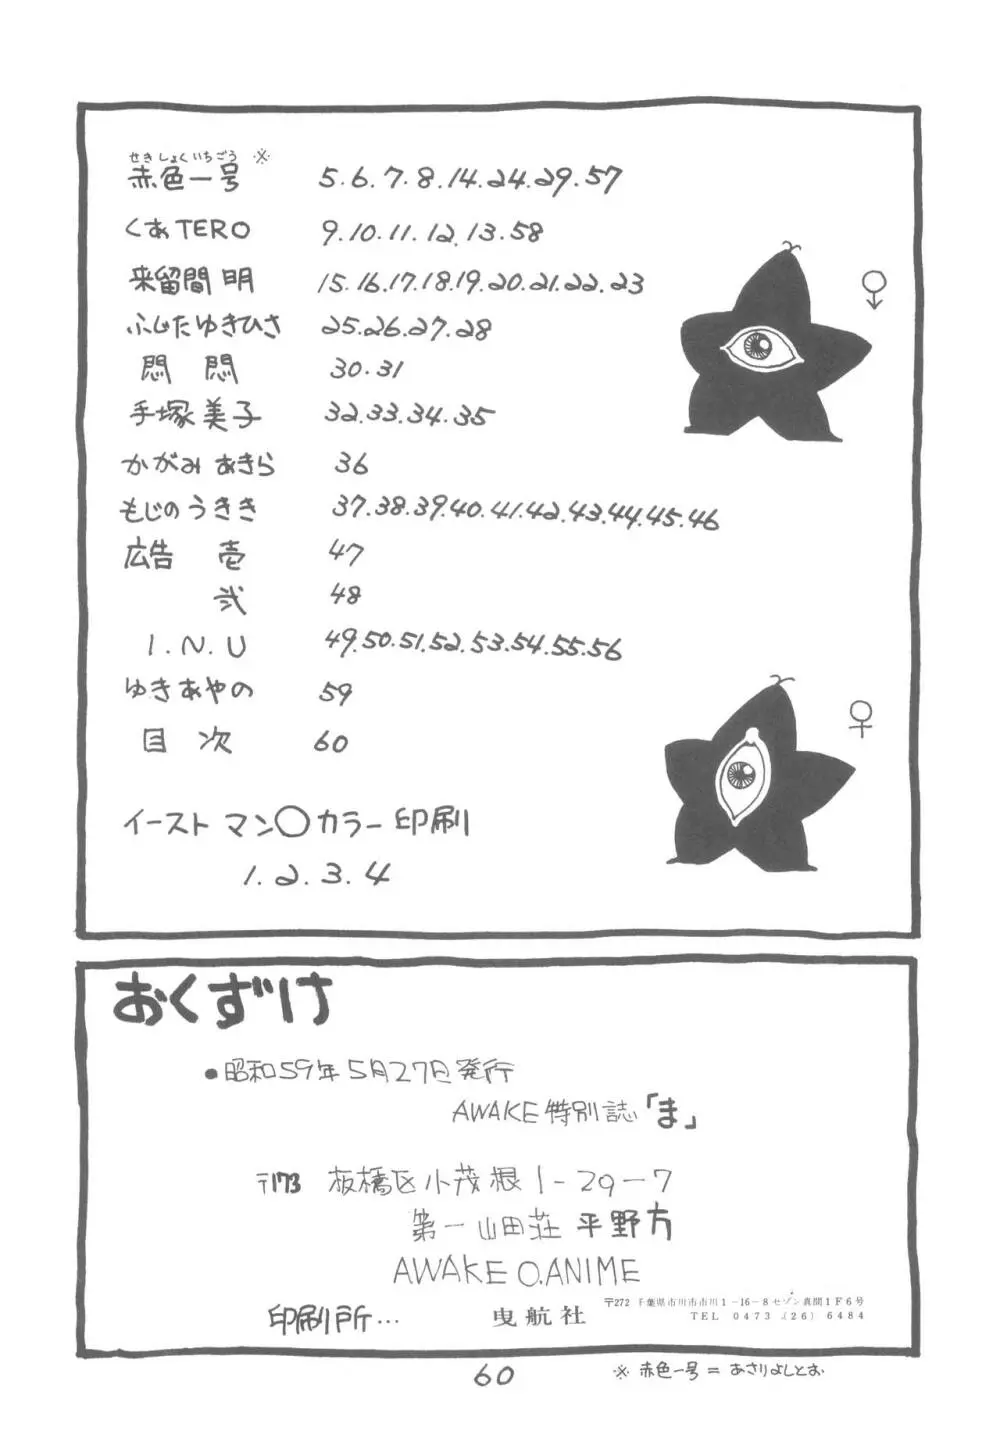 せきしょくいちごう
赤色一号 ※ 5.6.7.8.14.24.29.57
くあTERO 9.10.11.12.13.58
来留間明 15.16.17.18.19.20.21.22.23
ふじたゆきひさ 25.26.27.28
悶悶 30.31
手塚美子 32.33.34.35
かがみあきら 36
もじのうきき 37.38.39.40.41.42.43.44.45.46
広告 壱 47
弐 48
I.N.U 49.50.51.52.53.54.55.56
ゆきあやの 59
目次 60
♂
♀
イーストマン○カラー印刷
1.2.3.4
おくずけ
●昭和59年5月27日発行
AWAKE特別誌「ま」
〒173 板橋区小茂根1-29-7
第一山田荘 平野方
AWAKE O.ANIME
印刷所… 曳航社
〒272 千葉県市川市市川1-16-8セゾン真間1F6号
TEL 0473 (26) 6484
60
※ 赤色一号=あさりよしとお